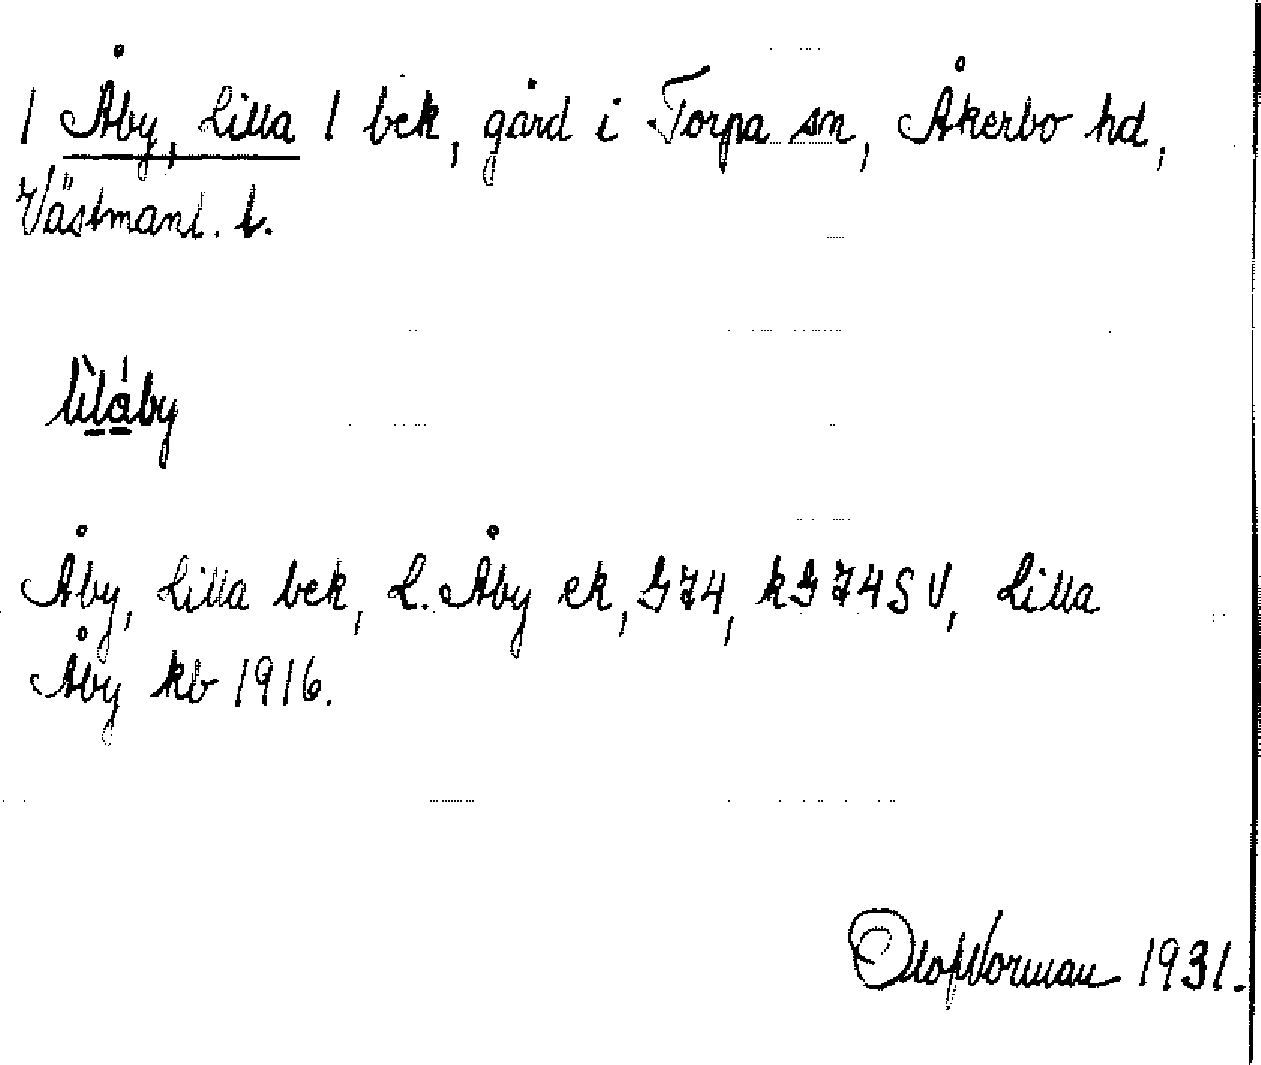 1 Åby, Lilla 1 bek, gård i Torpa sn, Åkerbo hd,
Västmanl. l.
lìlåby
Åby, Lilla bek, L. Åby ek, G74, kG74SV, Lilla
Åby kb 1916.
Olof Norman 1931.